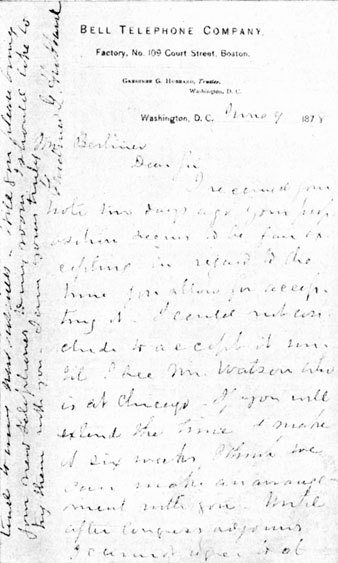 BELL TELEPHONE COMPANY,
Factory, No. 109 Court Street, Boston.
GARDINER G. HUBBARD, Trustee,
Washington, D. C.
Washington, D. C. 1878
Mr Berliner
Dear Sir
I received your
note two days ago your prop
osition seems to be fair ex
cepting in regard to the
time you allow for accep
ting it. I could not con
clude to accept it un
til I see Mr. Watson who
is at Chicago. If you will
extend the time & make
it six weeks I think we
can make an arrange
ment with you. Until
after Congress adjourns
I cannot agree to
your new telephones to my room I should like to
try them with you. I am yours truly
Gardiner G. Hubbard